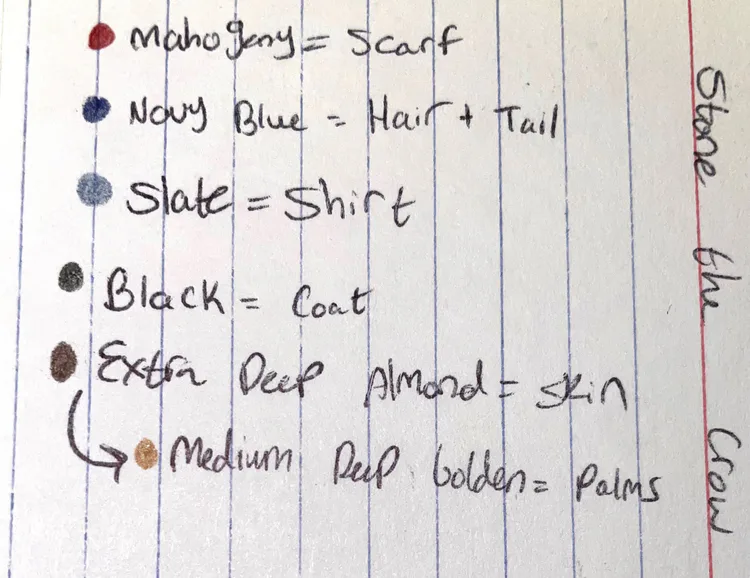 Mahogany = Scarf
Navy Blue = Hair + Tail
Slate = Shirt
Black = Coat
Extra Deep Almond = Skin
Medium Deep Golden = Palms
Stone the Crow